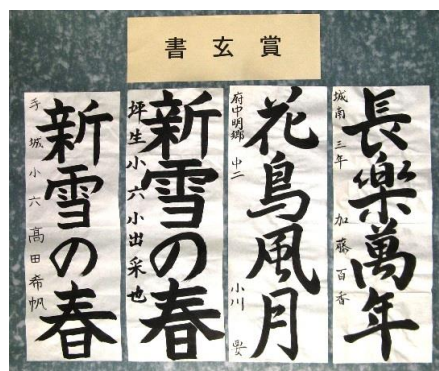 書玄賞
長樂萬年
城南三年 加藤百香
花鳥風月
府中明郷 中二 小川
新雪の春
坪生小六 小出采也
新雪の春
手城小六 高田希帆